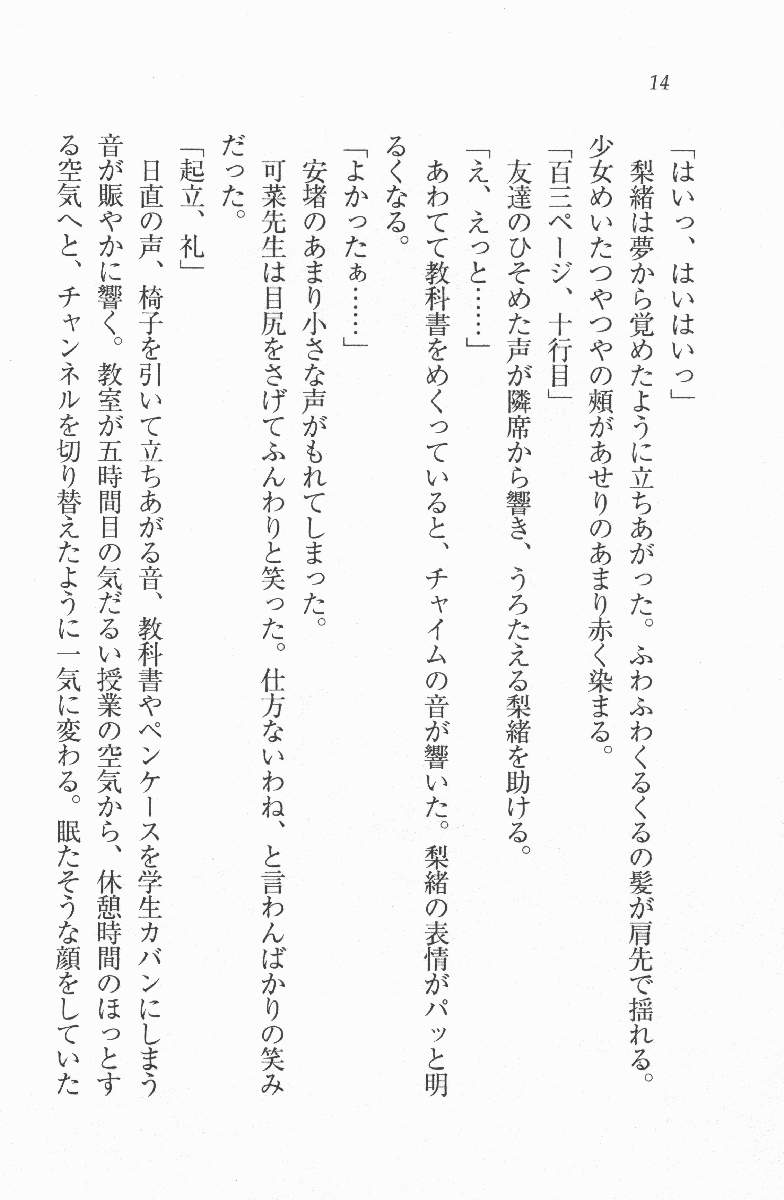 14
「はいっ、はいはいっ」
　梨緒は夢から覚めたように立ちあがった。ふわふわくるくるの髪が肩先で揺れる。
少女めいたつやつやの頰があせりのあまり赤く染まる。
「百三ページ、十行目」
　友達のひそめた声が隣席から響き、うろたえる梨緒を助ける。
「え、えっと……」
　あわてて教科書をめくっていると、チャイムの音が響いた。梨緒の表情がパッと明
るくなる。
「よかったぁ……」
　安堵のあまり小さな声がもれてしまった。
　可菜先生は目尻をさげてふんわりと笑った。仕方ないわね、と言わんばかりの笑み
だった。
「起立、礼」
　日直の声、椅子を引いて立ちあがる音、教科書やペンケースを学生カバンにしまう
音が賑やかに響く。教室が五時間目の気だるい授業の空気から、休憩時間のほっとす
る空気へと、チャンネルを切り替えたように一気に変わる。眠たそうな顔をしていた